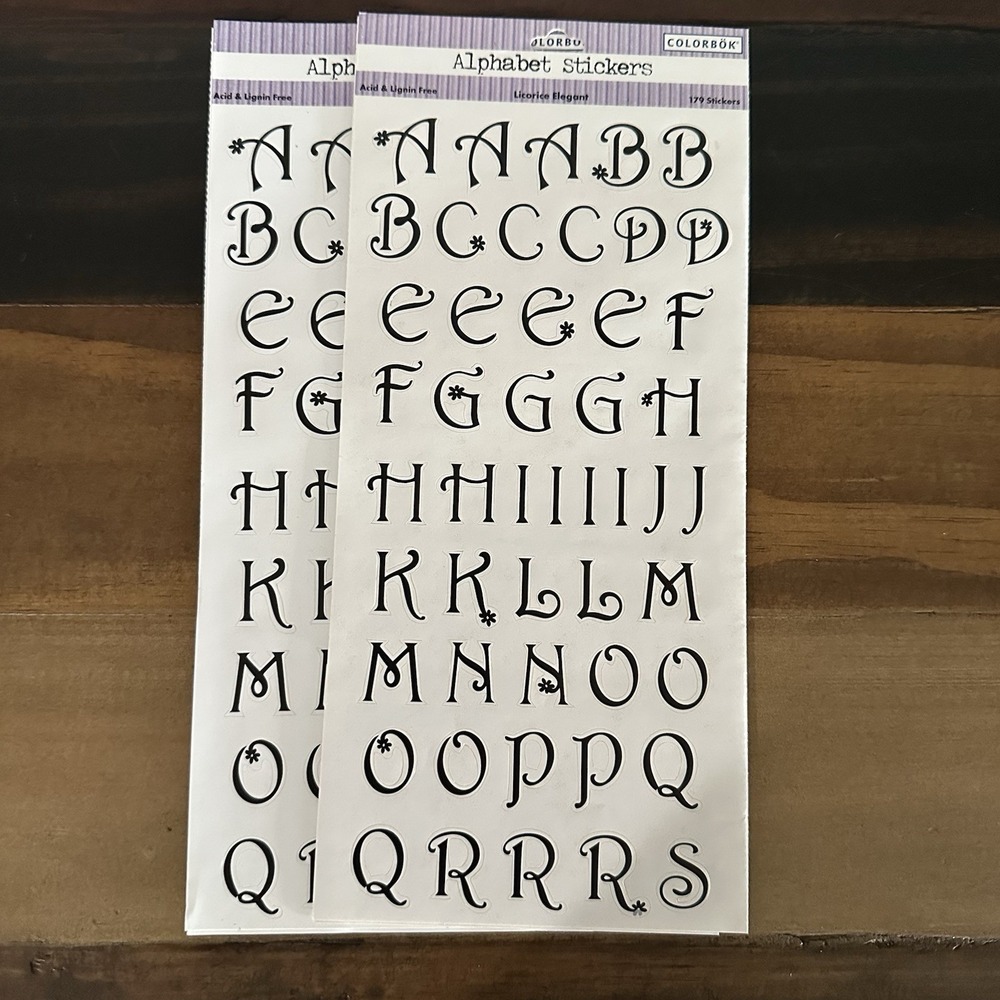 COLORBÖK
Alph
Alphabet Stickers
Acid & Lignin Free
Acid & Lignin Free Licorice Elegant 179 Stickers
A A
A A A B B
B C
B C C C D D
E E
E E E E F
F G
F G G G H
H H
H H I I I I J J
K K
K K L L M
M
M N N O O
O O
O O P P Q
Q
Q R R R S